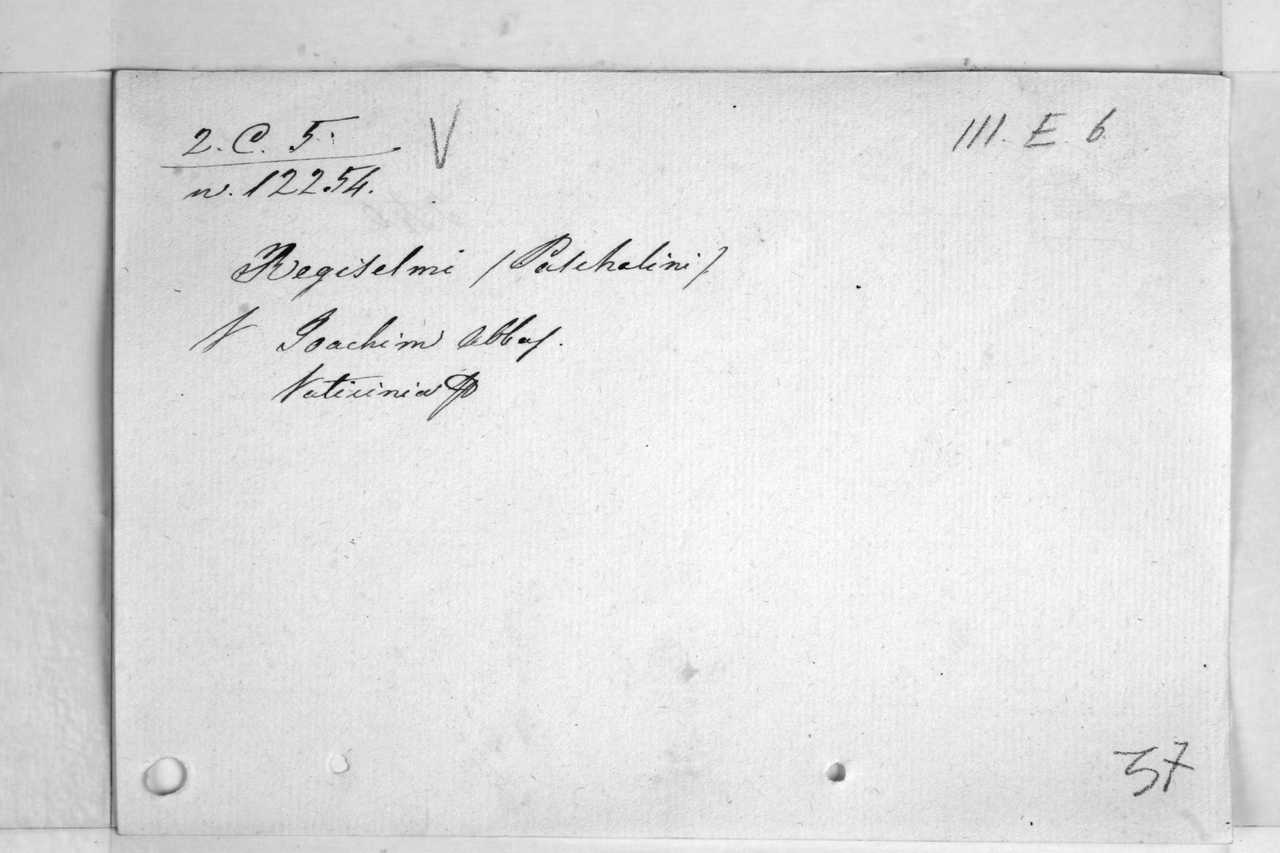 2. C. 5. V III. E. 6
n. 12254.
Regiselmi (Paschalini)
V Joachim Abbas.
Vaticinia
37